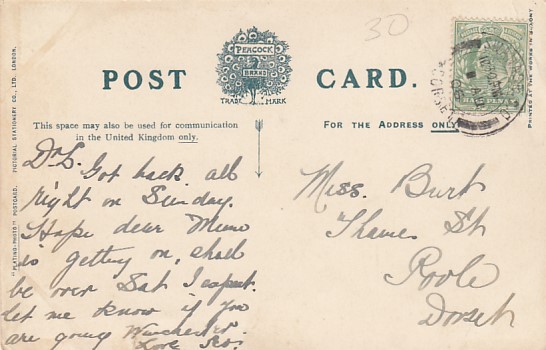 30
POST CARD.
PEACOCK
BRAND
TRADE MARK
This space may also be used for communication
in the United Kingdom only.
FOR THE ADDRESS ONLY
"PLATINO-PHOTO" POSTCARD. PICTORIAL STATIONERY CO., LTD. LONDON.
PRINTED AT THE WORKS IN SAXONY
HALFPENNY
Dr L. Got back all
right on Sunday.
Hope dear Mum
is getting on, shall
be over Sat I expect.
Let me know if you
are going Winchester.
Love
Miss. Burt
Thames St
Poole
Dorset